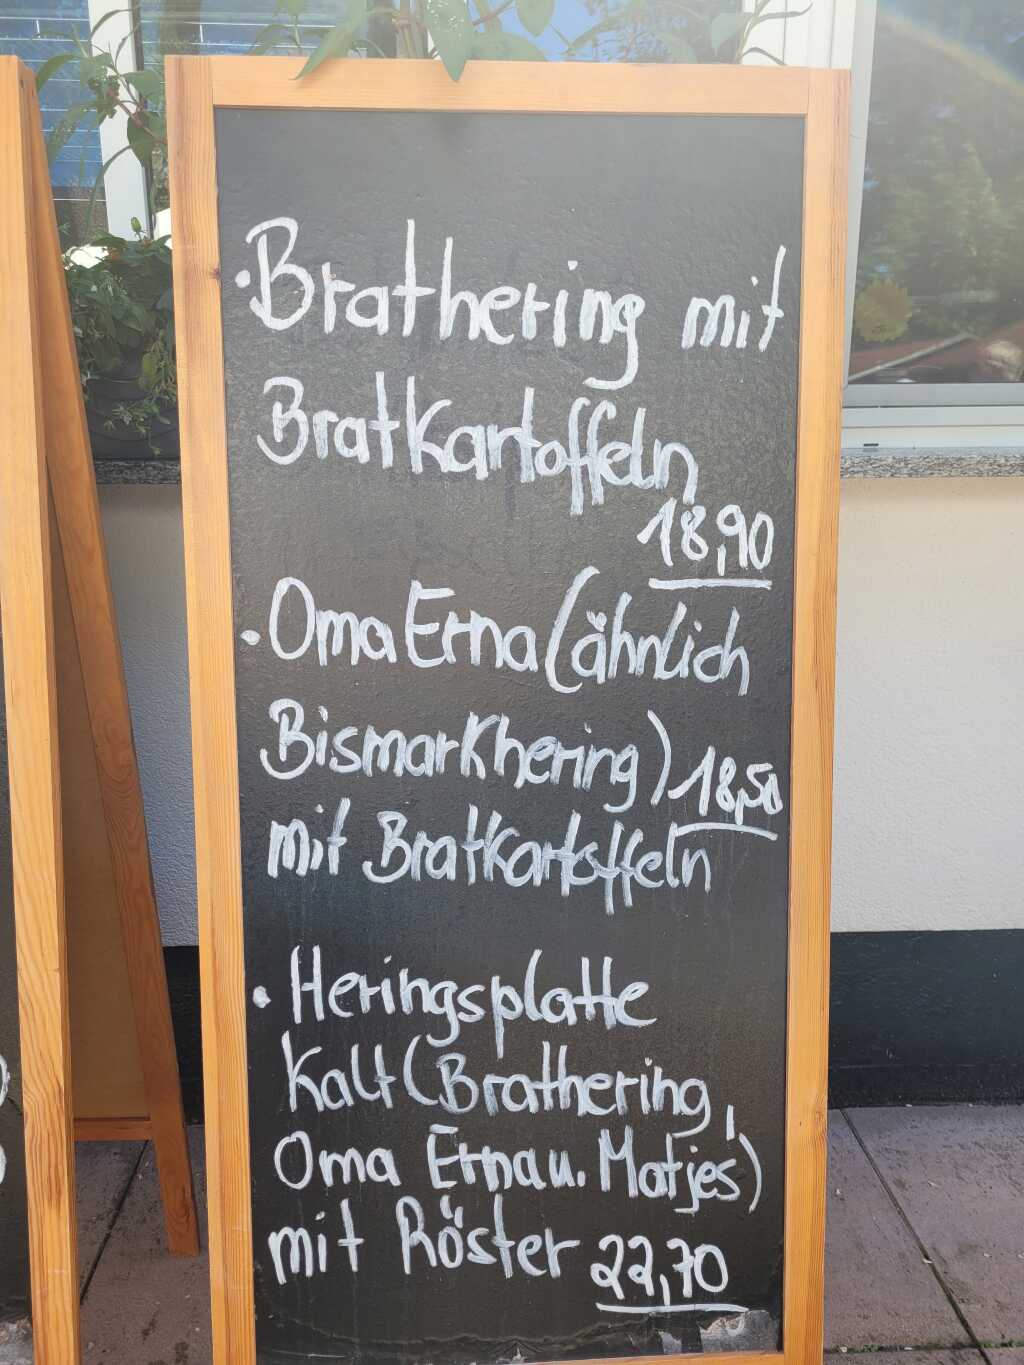 · Brathering mit
Bratkartoffeln
18,90
· Oma Erna (ähnlich
Bismarkhering) 18,50
mit Bratkartoffeln
· Heringsplatte
Kalt (Brathering,
Oma Erna u. Matjes)
mit Röster 22,70